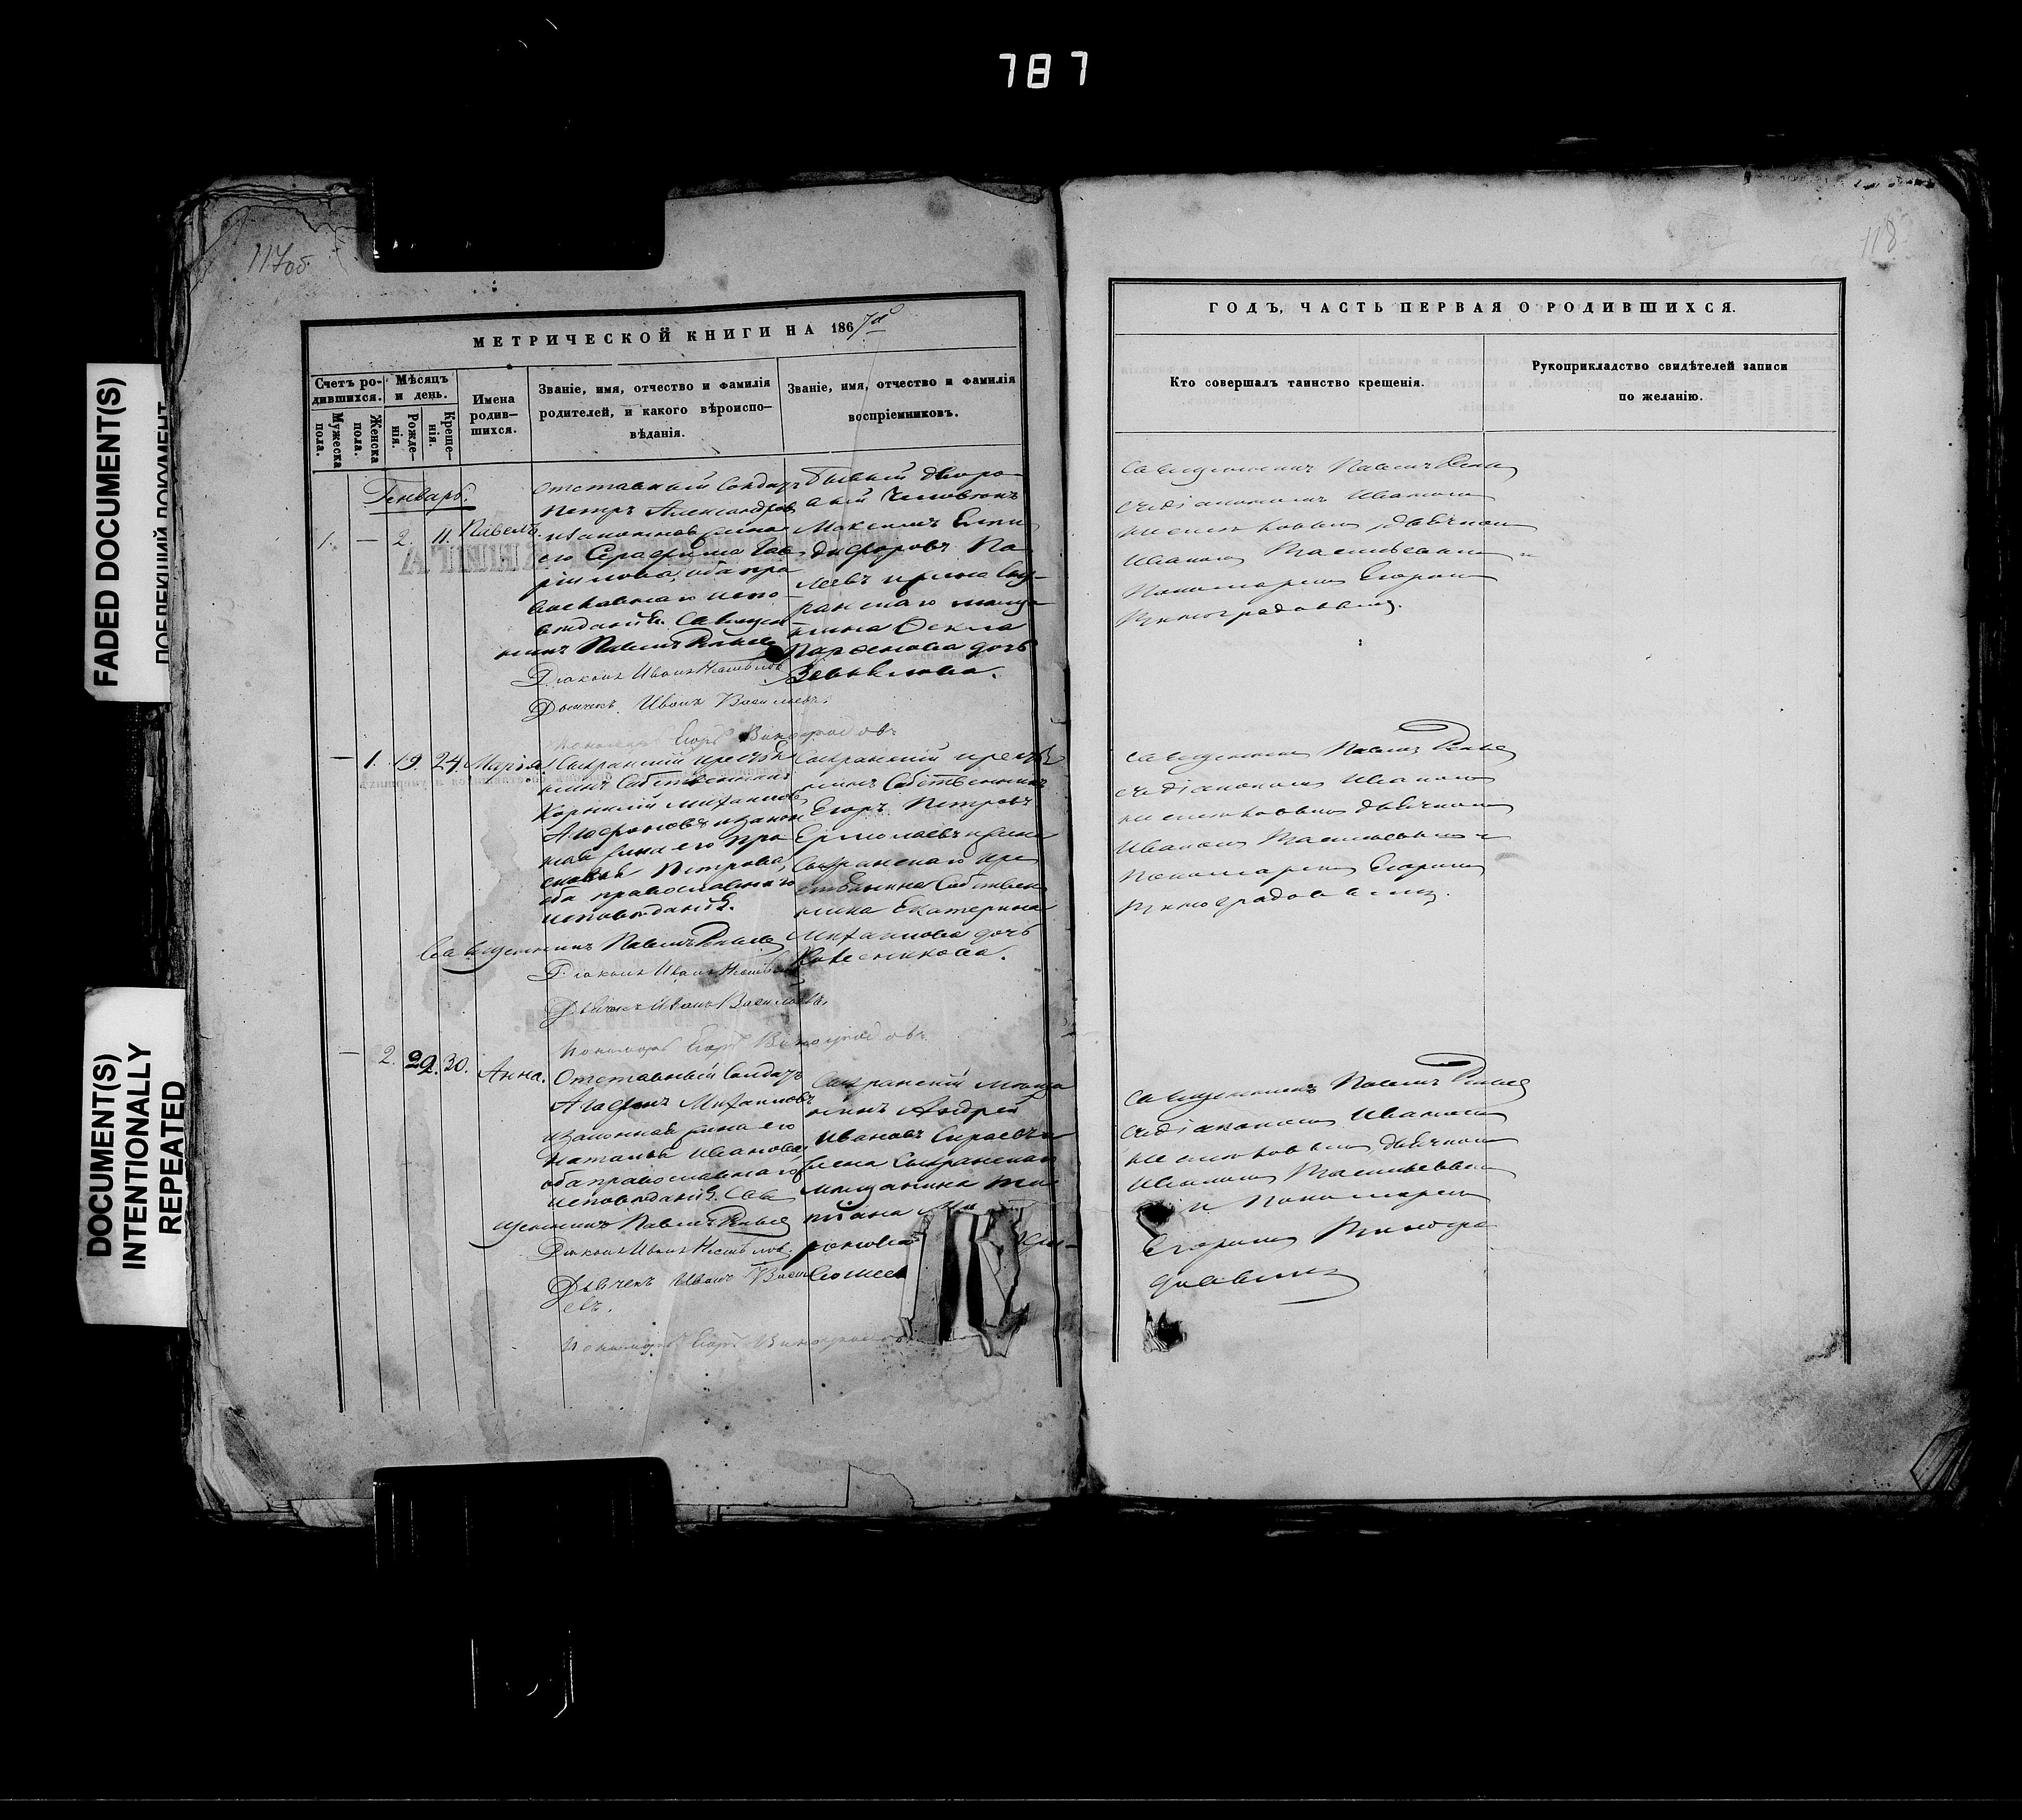 787
FADED DOCUMENT(S)
DOCUMENT(S)
INTENTIONALLY
REPEATED
117об.
МЕТРИЧЕСКОЙ КНИГИ НА 1867й
Счетъ ро-
дившихся.
Мужеска
пола.
Женска
пола.
Мѣсяцъ
и день.
Рожде-
нія.
Креще-
нія.
Имена
родив-
шихся.
Званіе, имя, отчество и фамилія
родителей, и какого вѣроиспо-
вѣданія.
Званіе, имя, отчество и фамилія
воспріемниковъ.
Генварь.
1. — 2. 11. Павелъ.
Отставный Солдатъ
Петръ Александровъ
и законная жена
его Серафима Гав
рилова, оба пра
вославнаго испо
вѣданія. Священ
никъ Павелъ
Діаконъ Иванъ
Дьячекъ Иванъ Васильевъ.
Пономарь Егоръ Виноградовъ
Бывый дворо
вый человѣкъ
Максимъ Елпи
дифоровъ
и жена Сыз-
ранскаго мѣща
нина Ѳекла
Парфенова дочь
— 1. 19. 24. Марія.
Сызранскій крестья
нинъ Собственникъ
Корнилій Михайловъ
Агафоновъ и закон
ная жена его Пра
сковья Петрова,
оба православнаго
исповѣданія.
Священникъ Павелъ
Діаконъ Иванъ
Дьячекъ Иванъ Васильевъ.
Пономарь Егоръ Виноградовъ
Сызранскій кресть
нинъ Собственникъ
Егоръ Петровъ
Ермолаевъ и жена
Сызранскаго кре
стьянина Собствен
ника Екатерина
Михайлова дочь
Колесникова.
— 2. 29. 30. Анна.
Отставный Солдатъ
Агафонъ Михайловъ
и законная жена его
Наталья Иванова,
оба православнаго
исповѣданія. Свя
щенникъ Павелъ
Діаконъ Иванъ
Дьячекъ Иванъ Василь
евъ.
Пономарь Егоръ Виноградовъ
Сызранскій мѣща
нинъ Андрей
Ивановъ Сираевъ и
жена Сызранскаго
мѣщанина Та
тіана
118
ГОДЪ, ЧАСТЬ ПЕРВАЯ О РОДИВШИХСЯ.
Кто совершалъ таинство крещенія.
Рукоприкладство свидѣтелей записи
по желанію.
Священникъ Павелъ
съ діакономъ Иваномъ
дьячкомъ
Иваномъ Васильевымъ и
Пономаремъ Егоромъ
Виноградовымъ.
Священникъ Павелъ
съ діакономъ Иваномъ
дьячкомъ
Иваномъ Васильевымъ и
Пономаремъ Егоромъ
Виноградовымъ.
Священникъ Павелъ
съ діакономъ Иваномъ
дьячкомъ
Иваномъ Васильевымъ
и Пономаремъ
Егоромъ Виногра
довымъ